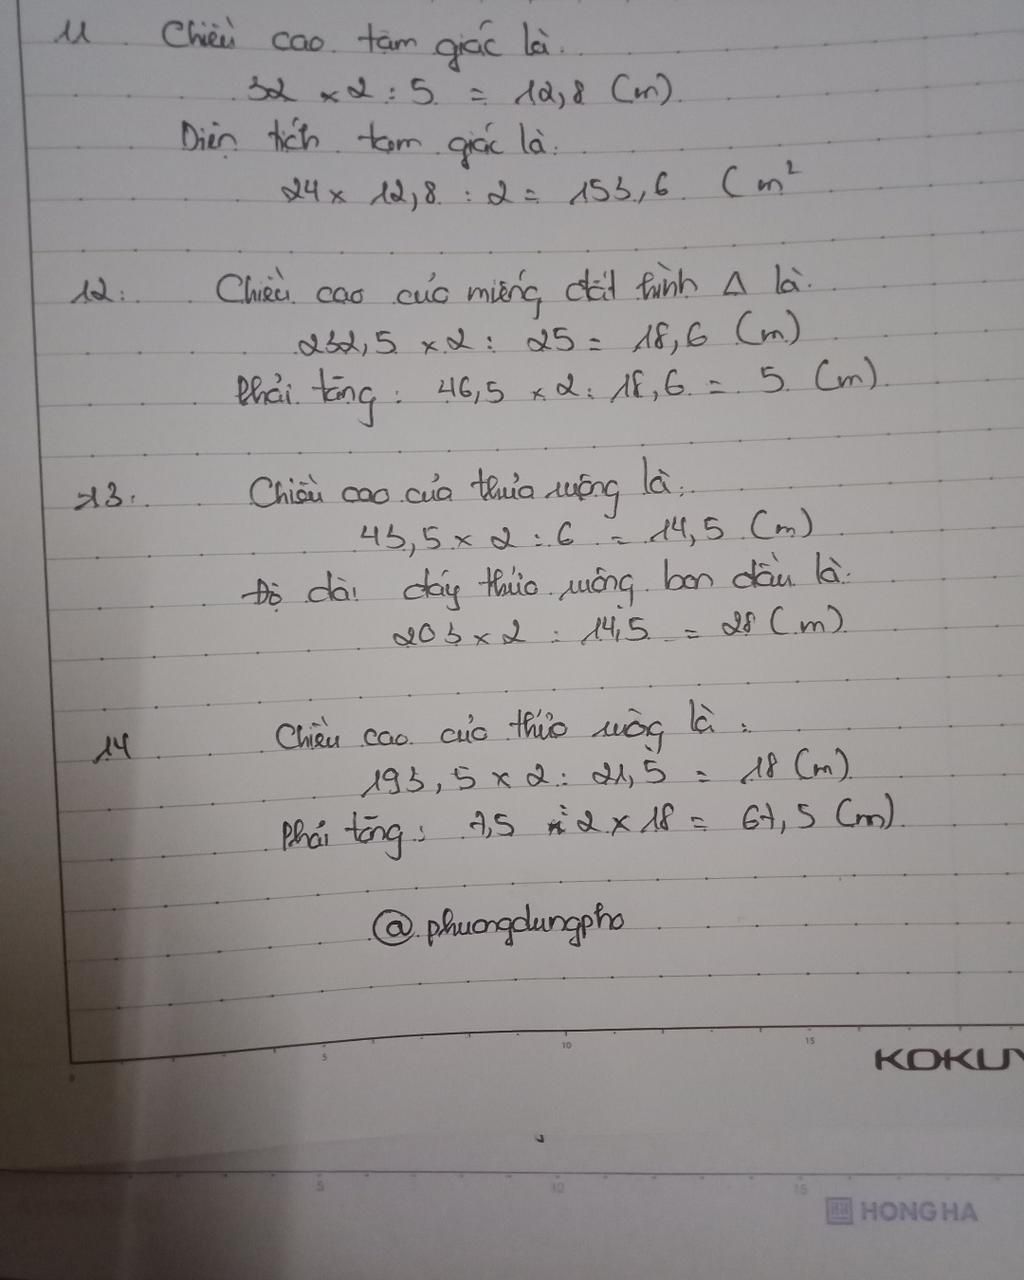 11 Chiều cao tam giác là.
32 × 2 : 5 = 12,8 (m)
Diện tích tam giác là.
24 × 12,8 : 2 = 153,6 (m²
12. Chiều cao của miếng đất hình Δ là.
232,5 × 2 : 25 = 18,6 (m)
Phải tăng : 46,5 × 2 : 18,6 = 5 (m)
13. Chiều cao của thửa ruộng là.
43,5 × 2 : 6 = 14,5 (m)
Độ dài đáy thửa ruộng ban đầu là.
203 × 2 : 14,5 = 28 (m)
14 Chiều cao của thửa ruộng là :
193,5 × 2 : 21,5 = 18 (m)
Phải tăng : 7,5 : 2 × 18 = 67,5 (m)
@phuongdungpho
0 5 10 15
KOKUY
5 10 15
HONG HA